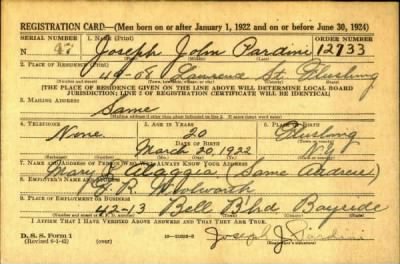 REGISTRATION CARD—(Men born on or after January 1, 1922 and on or before June 30, 1924)
SERIAL NUMBER 1. NAME (Print) ORDER NUMBER
N 47 Joseph John Pardini 12733
2. PLACE OF RESIDENCE (Print)
49-08 Laurence St. Flushing
[THE PLACE OF RESIDENCE GIVEN ON THE LINE ABOVE WILL DETERMINE LOCAL BOARD
JURISDICTION; LINE 2 OF REGISTRATION CERTIFICATE WILL BE IDENTICAL]
3. MAILING ADDRESS
Same
[Mailing address if other than place indicated on line 2. If same insert word same]
4. TELEPHONE 5. AGE IN YEARS 6. PLACE OF BIRTH
None 20 Flushing
DATE OF BIRTH
March 20, 1922 N.Y.
7. NAME AND ADDRESS OF PERSON WHO WILL ALWAYS KNOW YOUR ADDRESS
Mary Alaggia (Same Address)
8. EMPLOYER'S NAME AND ADDRESS
F. W. Woolworth
9. PLACE OF EMPLOYMENT OR BUSINESS
42-13 Bell Blvd Bayside
I AFFIRM THAT I HAVE VERIFIED ABOVE ANSWERS AND THAT THEY ARE TRUE.
D. S. S. Form 1
(Revised 6-1-42) (over)
Joseph J. Pardini